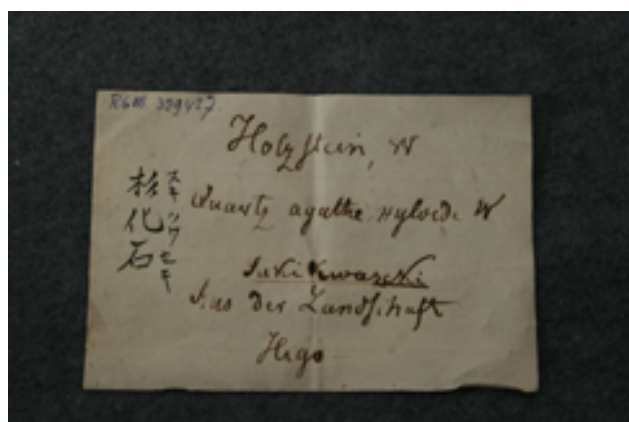 RGM 329427
Holzstein, W
杉化石
スキクワセキ
Quartz agathe xyloide W
Sukikwaseki
Aus der Landschaft
Higo